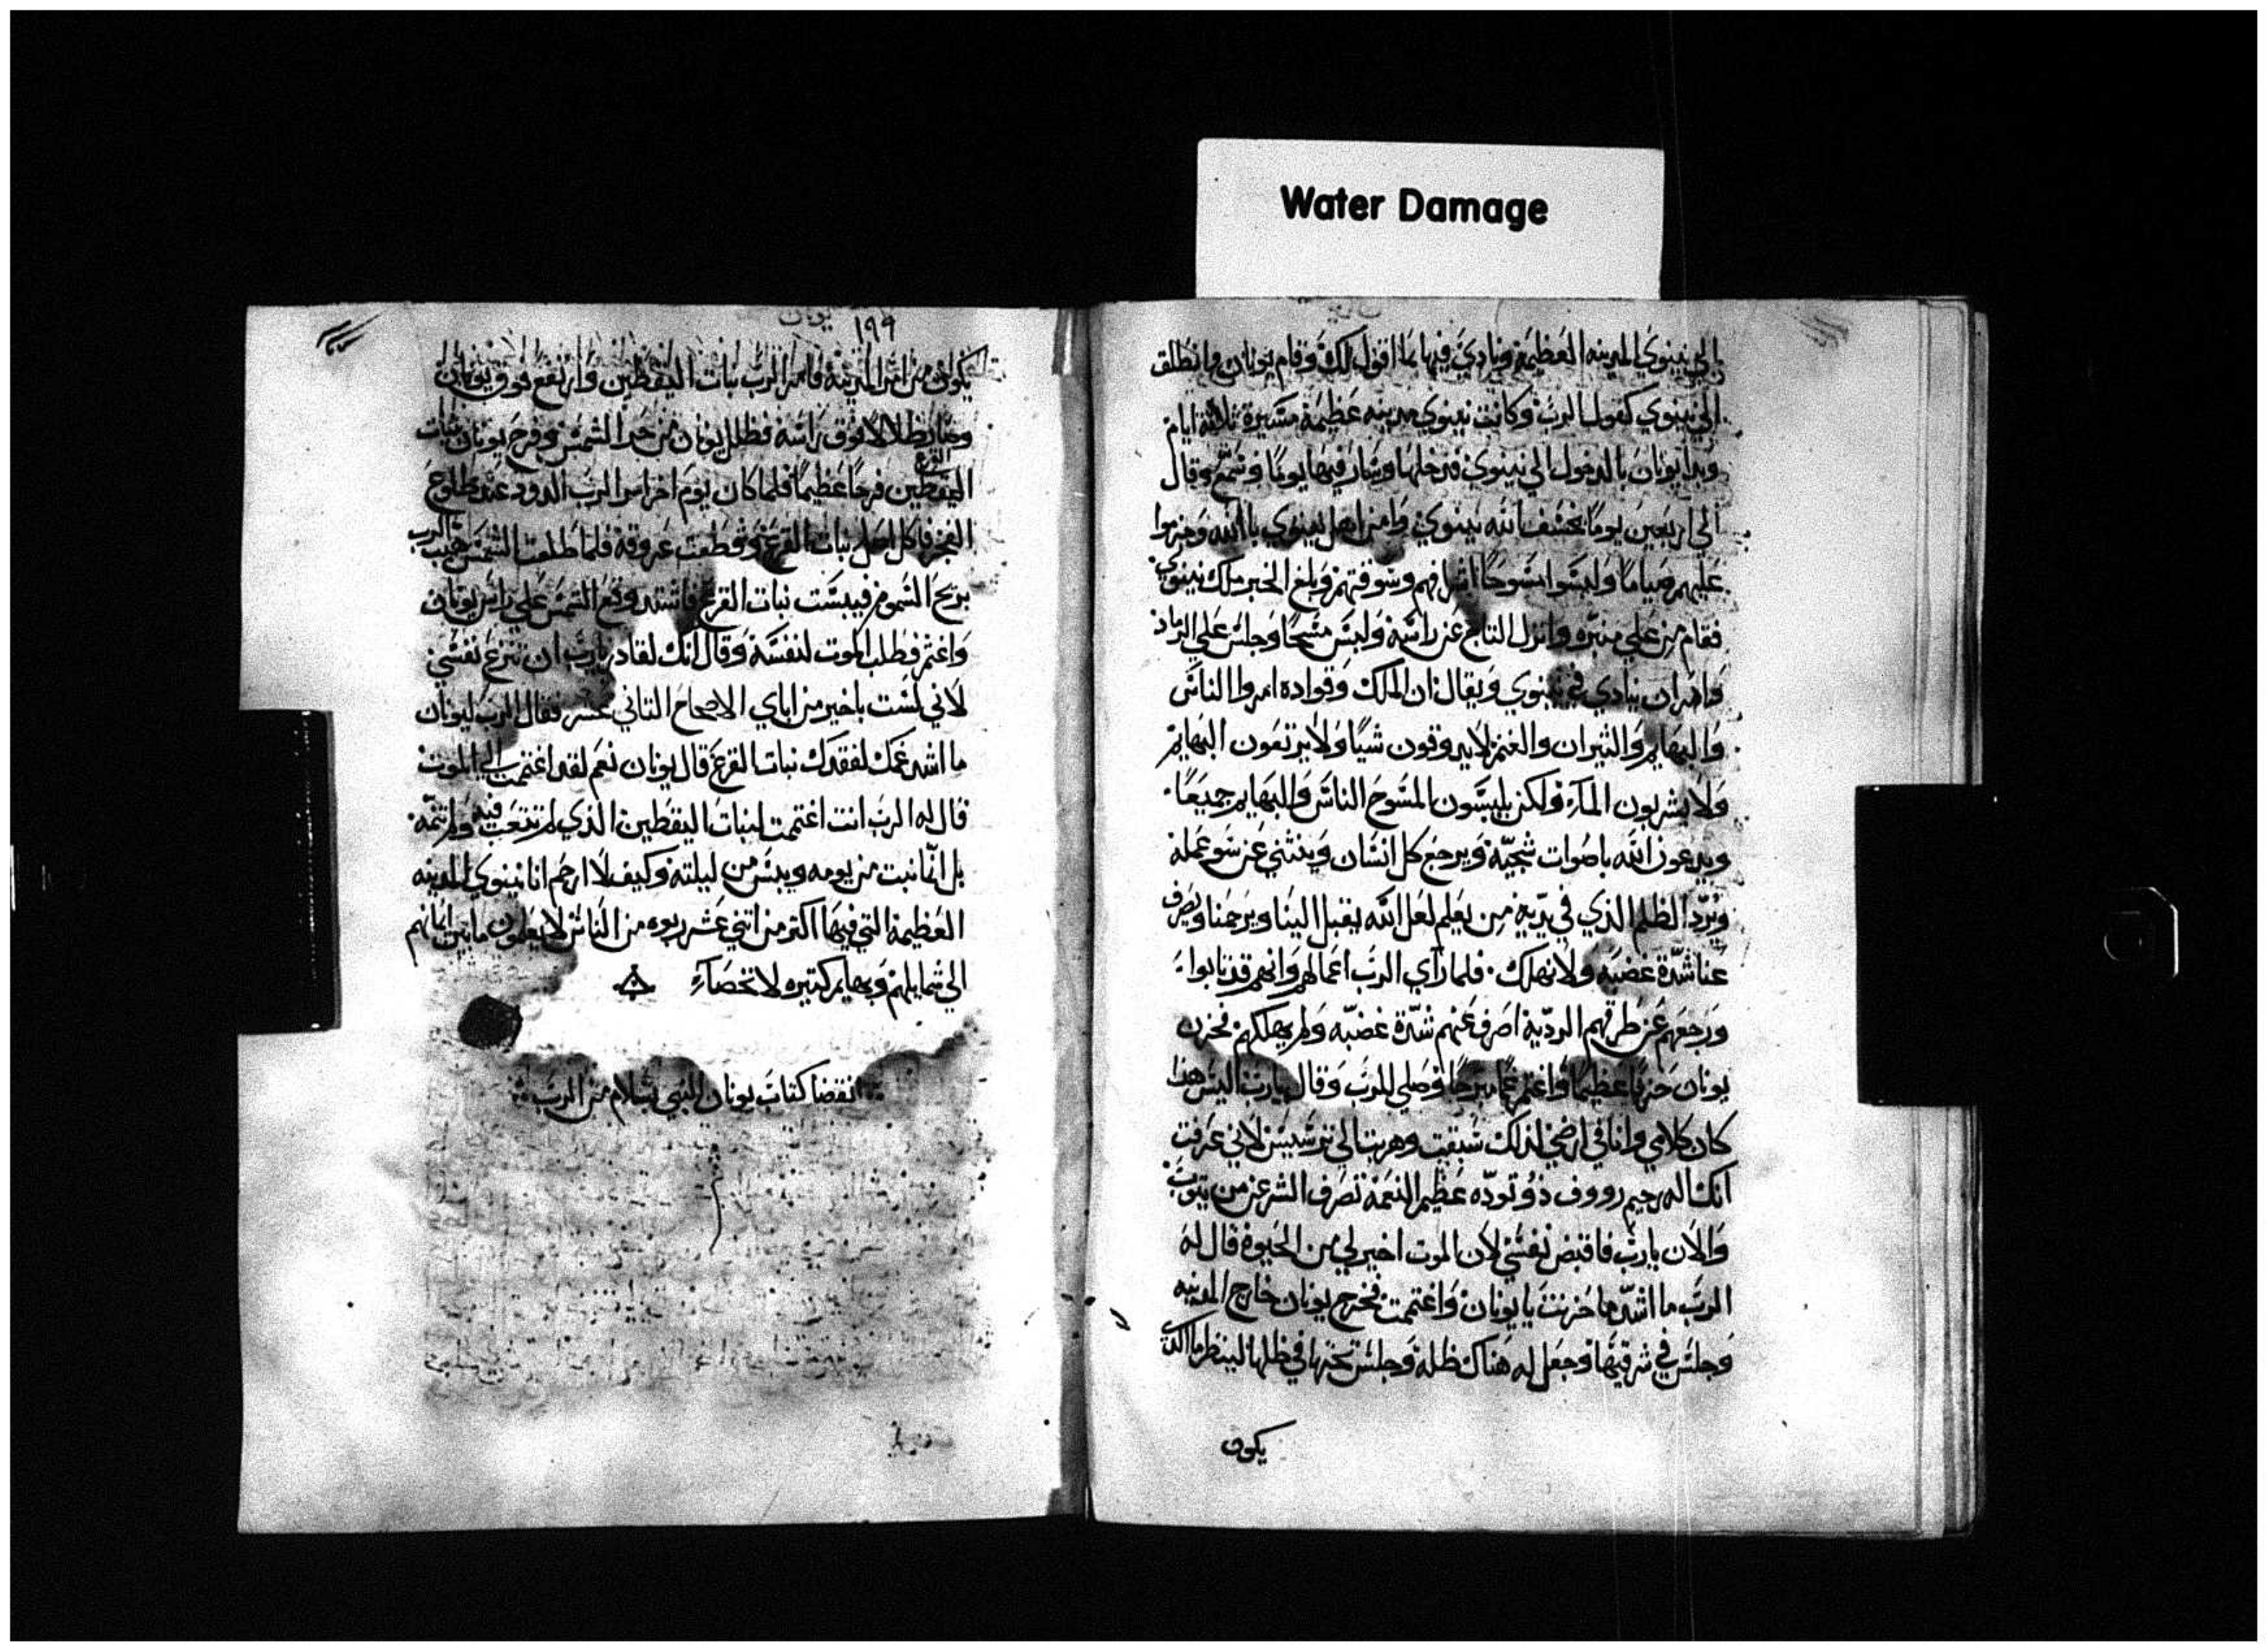 Water Damage
الي نينوي المدينه العظيمة ونادي فيها بما اقول لك وقام يونان وانطلق
الي نينوي كقول الرب وكانت نينوي مدينه عظيمة مسيرة ثلاثة ايام
وبدا يونان بالدخول الي نينوي فدخلها وسار فيها يومًا وقال
الي اربعين يومًا يخسف الله بنينوي وامن اهل نينوي بالله وحزموا
عليهم صيامًا ولبسوا مسوحًا اشرافهم وسوقتهم وبلغ الخبر ملك نينوي
فقام من علي منبره وانزل التاج عن راسه ولبس مسحًا وجلس علي الرماد
وامر ان ينادي في نينوي ويقال ان الملك وقواده امروا الناس
والبهايم والثيران والغنم لا يذوقون شيًا ولا يرتعون البهايم
ولا يشربون المآء ولكن يلبسون المسوح الناس والبهايم جميعًا
ويدعون الله باصوات شجيّة ويرجع كل انسان وينثني عن سو عمله
ويردّ الظلم الذي في يديه من يعلم لعل الله يقبل الينا ويرحمنا ويصرف
عنا شدّة غضبه ولا نهلك فلما راي الرب اعمالهم وانهم قد تابوا
ورجعهم عن طرقهم الرديّة اصرف عنهم شدّة غضبه ولم يهلكهم فحزن
يونان حزنًا عظيمًا واغتم غمًا مبرحًا وصلي للرب وقال يا رب اليس هذا
كان كلامي وانا في ارضي لذلك سبقت وهربت الي ترسيس لاني عرفت
انك اله رحيم رووف ذو تودّه عظيم النعمة تصرف الشر عن من يتوب
والان يا ربّ فاقبض نفسي لان الموت اخير لي من الحيوة قال له
الرب ما اشدّ ما حزنت يا يونان واغتممت فخرج يونان خارج المدينه
وجلس في شرقيها وجعل له هناك ظلة وجلس تحتها في ظلها لينظر ما الذي
يكون
١٩٩
يونان
يكون من امر المدينة فامر الرب نبات اليقطين وارتفع فوق يونان
وصار ظلالًا فوق راسه فظلل يونان من حر الشمس وفرح يونان بنبات
القرع
اليقطين فرحًا عظيمًا فلما كان يوم اخر امر الرب الدود عند طلوع
الفجر فاكل اصل نبات القرع وقطعت عروقه فلما طلعت الشمس الرب
بريح السموم فيبست نبات القرع فاشتد وقع الشمس علي راس يونان
واغتم فطلب الموت لنفسه وقال انك لقادر يا رب ان تنزع نفسي
لاني لست باخير من اباي الاصحاح الثاني عشر فقال الرب ليونان
ما اشد غمك لفقدك نبات القرع قال يونان نعم لقد اغتممت الي الموت
قال له الرب انت اغتممت لنبات اليقطين الذي لم تتعب فيه ولم تنمّه
بل انّما نبت من يومه ويبس من ليلته وكيف لا ارحم انا نينوي المدينه
العظيمة التي فيها اكثر من اثني عشر ربوه من الناس لا يعلمون ما بين ايمانهم
الي شمايلهم وبهايم كثيره لا تحصآء
انقضا كتاب يونان النبي بسلام من الرب